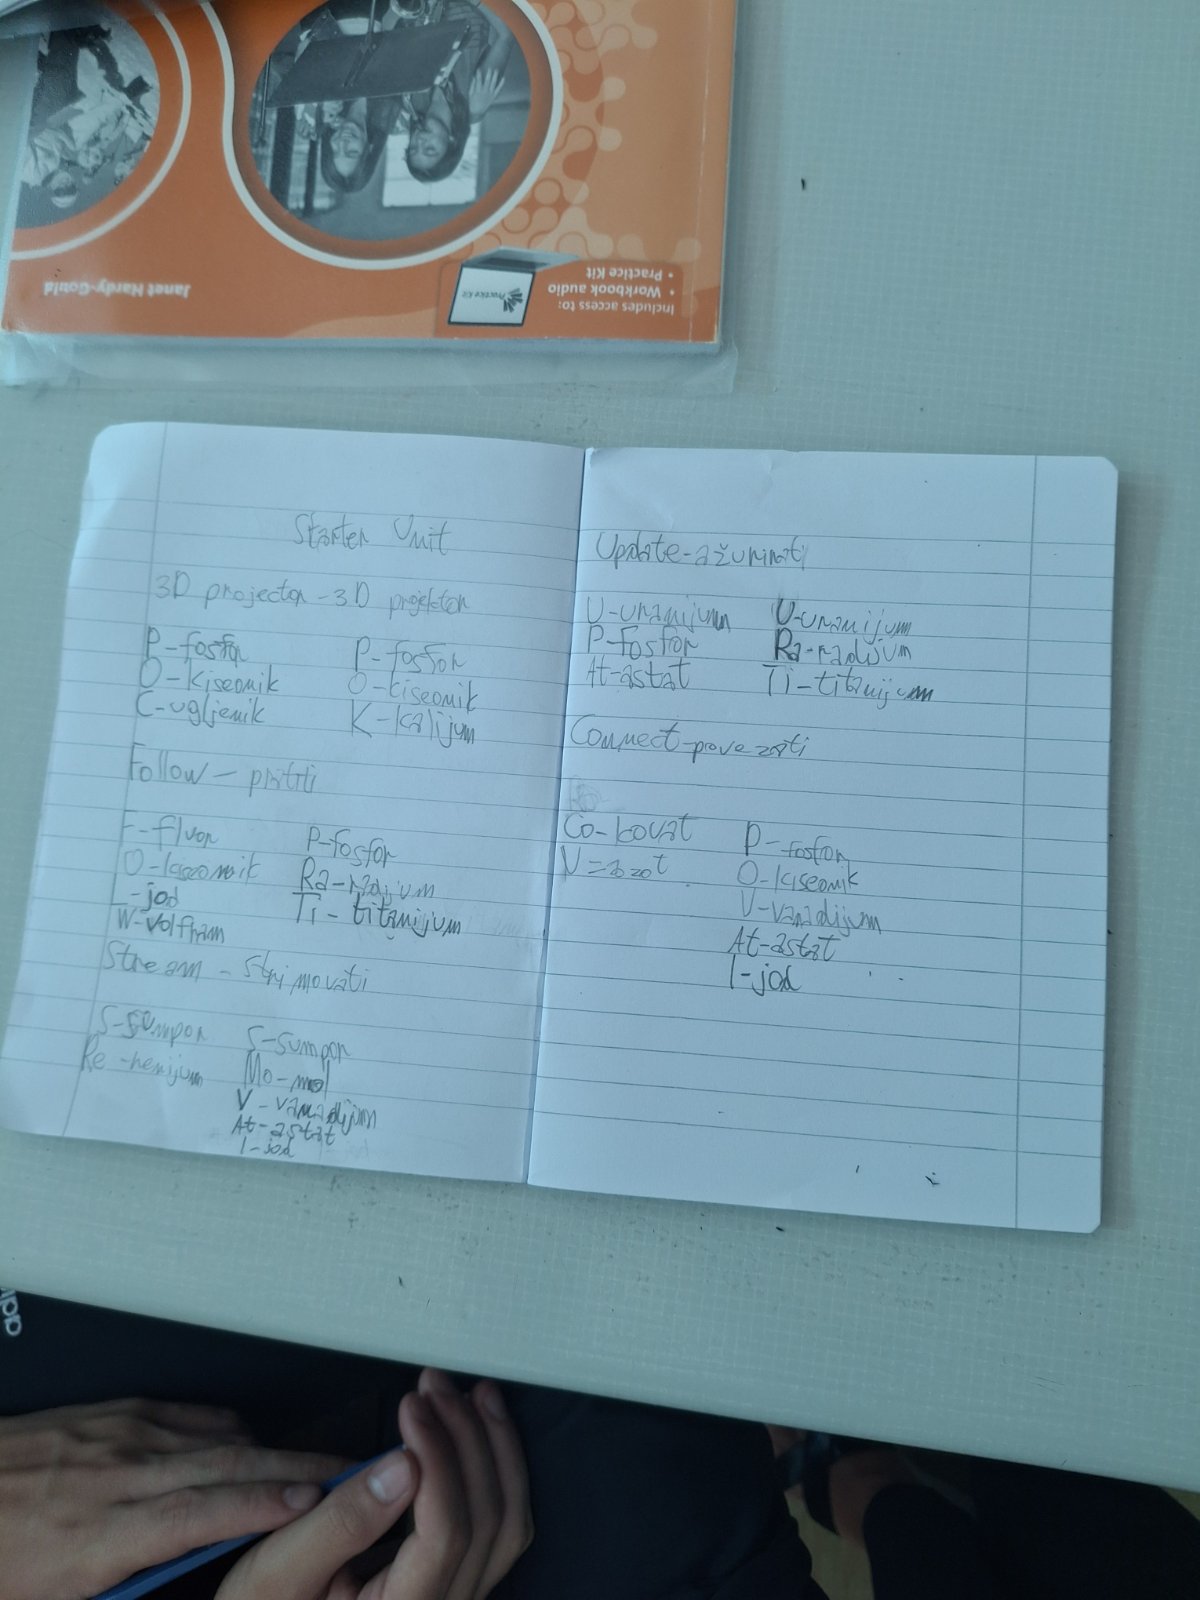 Janet Hardy-Gould
Includes access to:
• Workbook audio
• Practice Kit
Practice Kit
Starter Unit
3D projector - 3D projektor
P-fosfor P-fosfor
O-kiseonik O-kiseonik
C-ugljenik K-kalijum
Follow - pratiti
F-fluor P-fosfor
O-kiseonik Ra-radijum
I-jod Ti-titanijum
W-volfram
Stream - strimovati
S-sumpor S-sumpor
Re-renijum Mo-mol
V-vanadijum
At-astat
I-jod
Update-ažurirati
U-uranijum U-uranijum
P-fosfor Ra-radijum
At-astat Ti-titanijum
Connect-povezati
Co-kovat P-fosfor
N=azot O-kiseonik
V-vanadijum
At-astat
I-jod